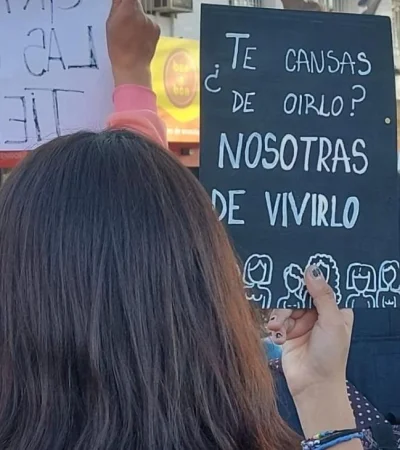 ¿TE CANSAS
DE OIRLO?
NOSOTRAS
DE VIVIRLO
LAS
TIE